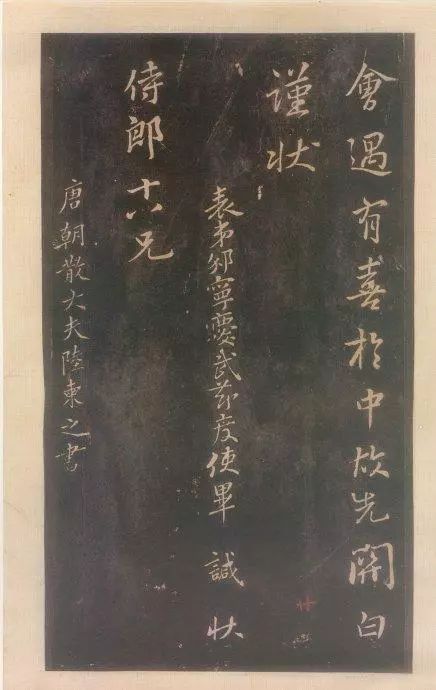 會遇有喜於中故先開白
謹狀
表弟邠寧慶武節度使畢 諴 狀
侍郎十八兄
唐朝散大夫陸柬之書